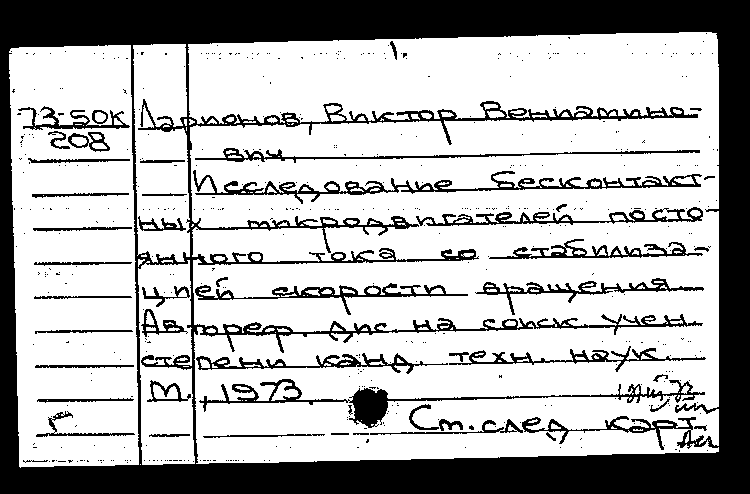 1.
73-50К Ларионов, Виктор Вениамино-
208
вич.
Исследование бесконтакт-
ных микродвигателей посто-
янного тока со стабилиза-
цией скорости вращения.
Автореф. дис. на соиск. учен.
степени канд. техн. наук.
М., 1973.
Г См. след карт